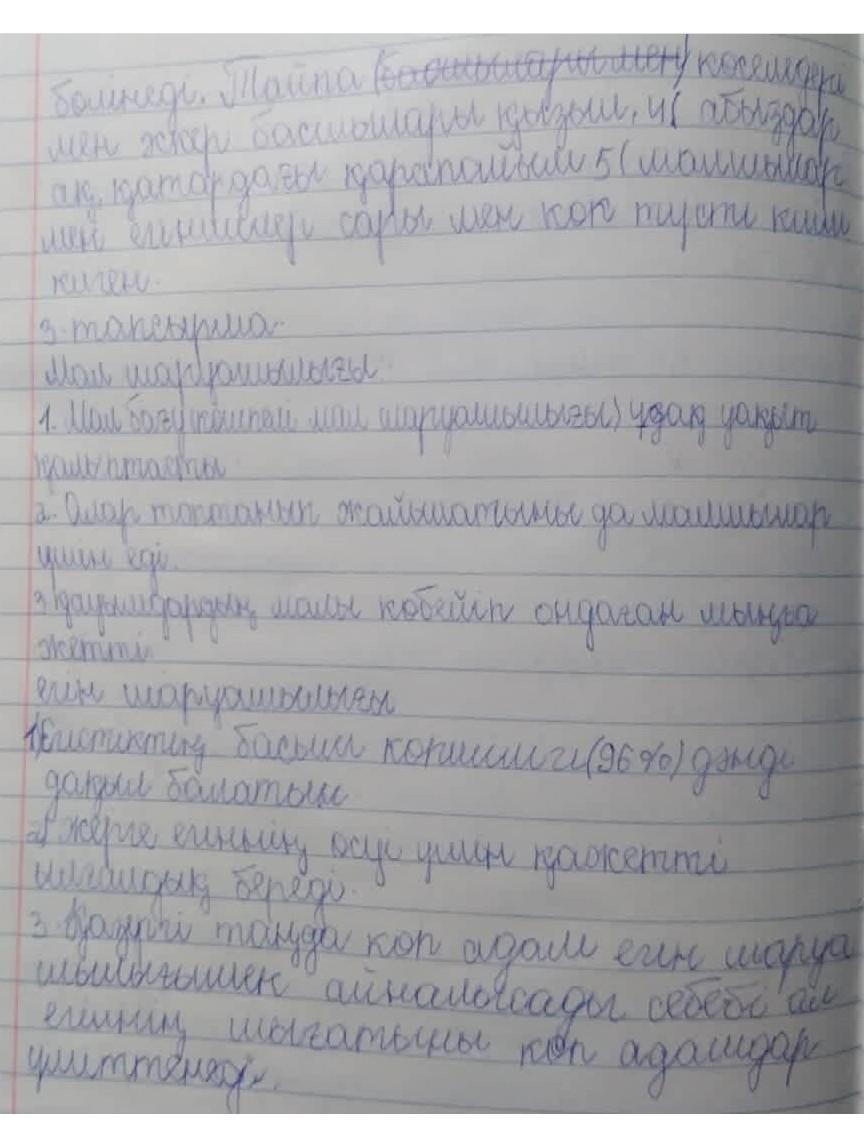 бөлінеді. Тайпа (басшылары мен) көсемдері
мен әскер басшылары қызыл, 4( абыздар
ақ, қатардағы қарапайым 5( малшылар
мен егіншілер сары мен көк түсті киім
киген.
3-тапсырма.
Мал шаруашылығы.
1. Мал бағу (көшпелі мал шаруашылығы) ұзақ уақыт
қалыптасты
2. Олар топтанып жайылатыны да малшылар
үшін еді.
3 қауымдардың малы көбейіп ондаған мыңға
жетті
егін шаруашылығы
1) Егістіктің басым көпшілігі (96%) дәнді
дақыл болатын
2) жерге егіннің өсуі үшін қажетті
ылғалдық береді.
3. Қазіргі таңда көп адам егін шаруа
шылығымен айналысады себебі ал
егіннің шығатыны көп адамдар
үміттенеді.